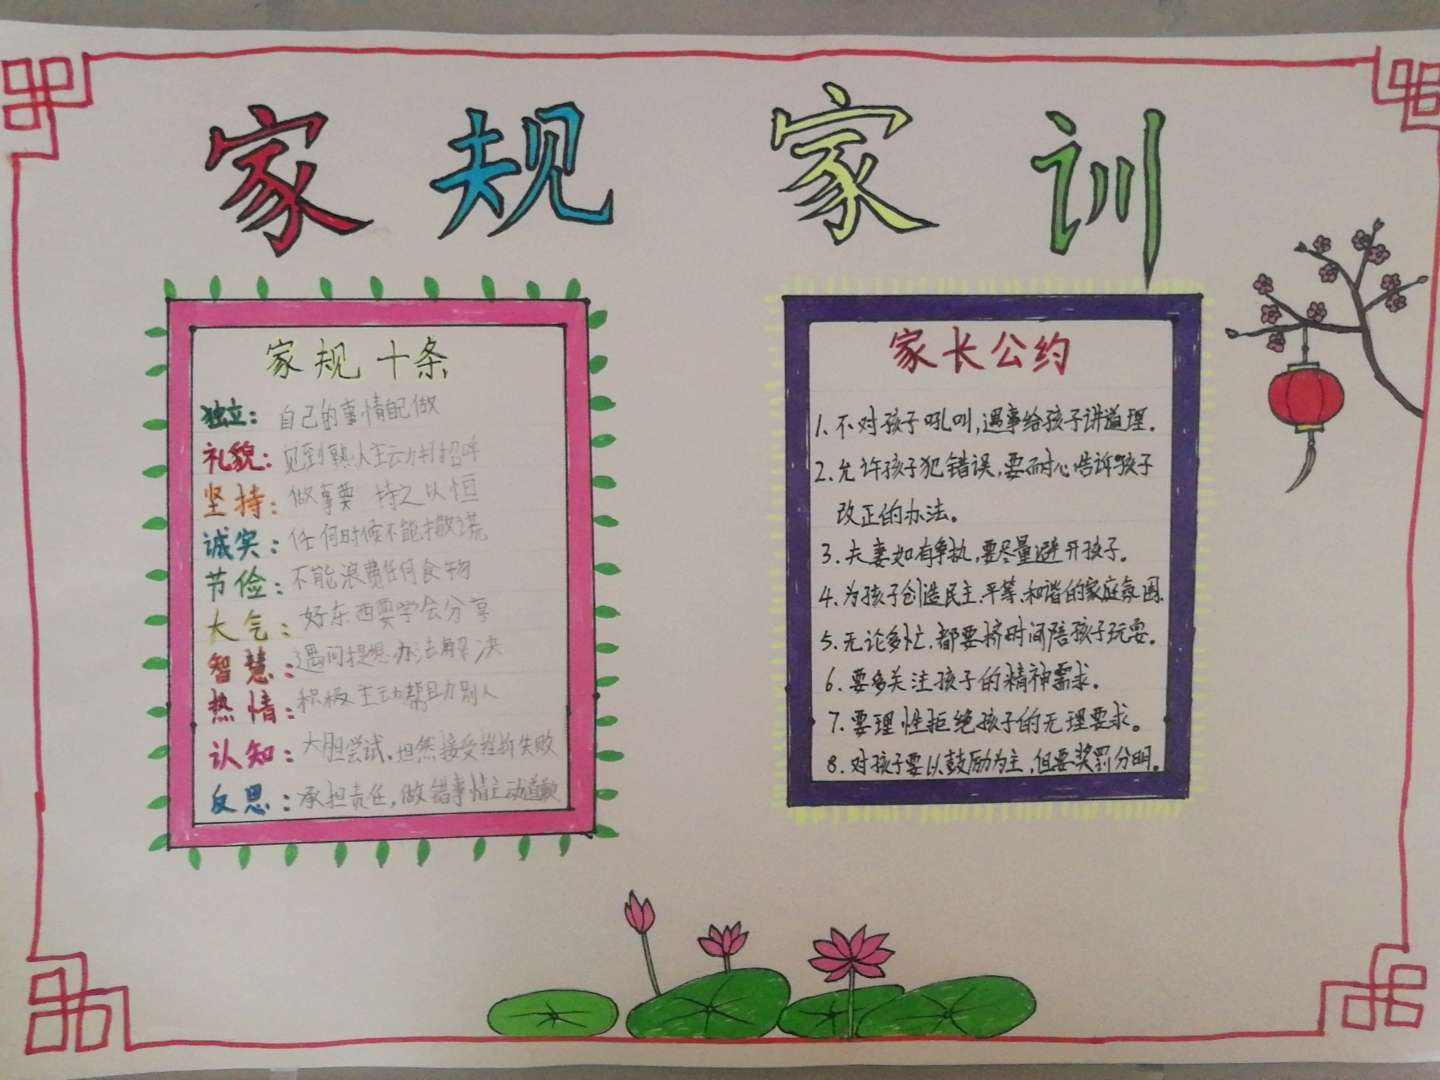 家规家训
家规十条
独立：自己的事情自己做
礼貌：见到熟人主动打招呼
坚持：做事要 持之以恒
诚实：任何时候不能撒谎
节俭：不能浪费任何食物
大气：好东西要学会分享
智慧：遇问提想办法解决
热情：积极主动帮助别人
认知：大胆尝试，坦然接受挫折失败
反思：承担责任，做错事情主动道歉
家长公约
1、不对孩子吼叫，遇事给孩子讲道理。
2、允许孩子犯错误，要耐心告诉孩子
改正的办法。
3、夫妻如有争执，要尽量避开孩子。
4、为孩子创造民主、平等、和谐的家庭氛围.
5、无论多忙，都要挤时间陪孩子玩耍。
6、要多关注孩子的精神需求。
7、要理性拒绝孩子的无理要求。
8、对孩子要以鼓励为主，但要奖罚分明。